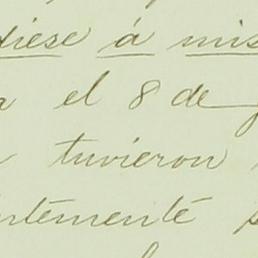 diese á mis
a el 8 de
tuvieron
ntemente